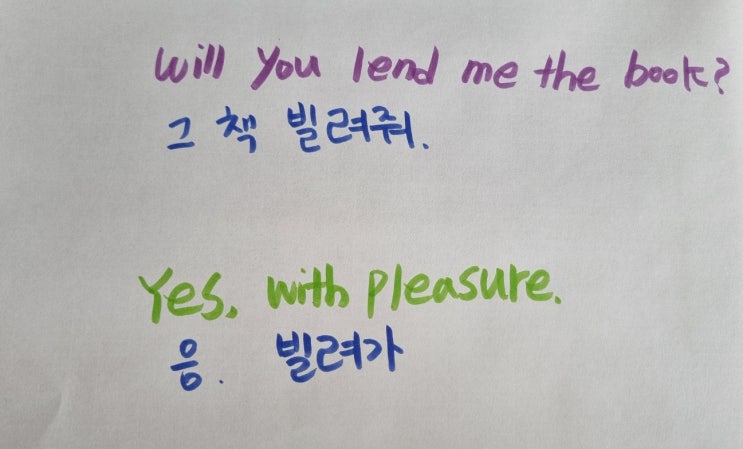 Will you lend me the book?
그 책 빌려줘.
Yes, with pleasure.
응. 빌려가